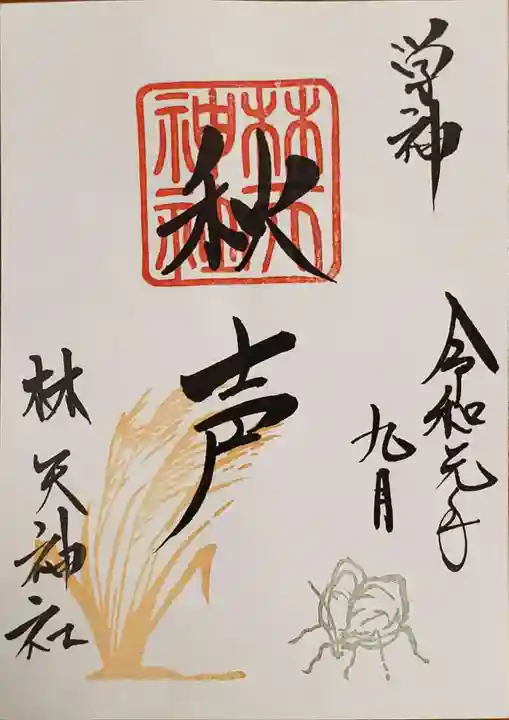 学神
令和元年
九月
秋声
林天神社
林天
神社